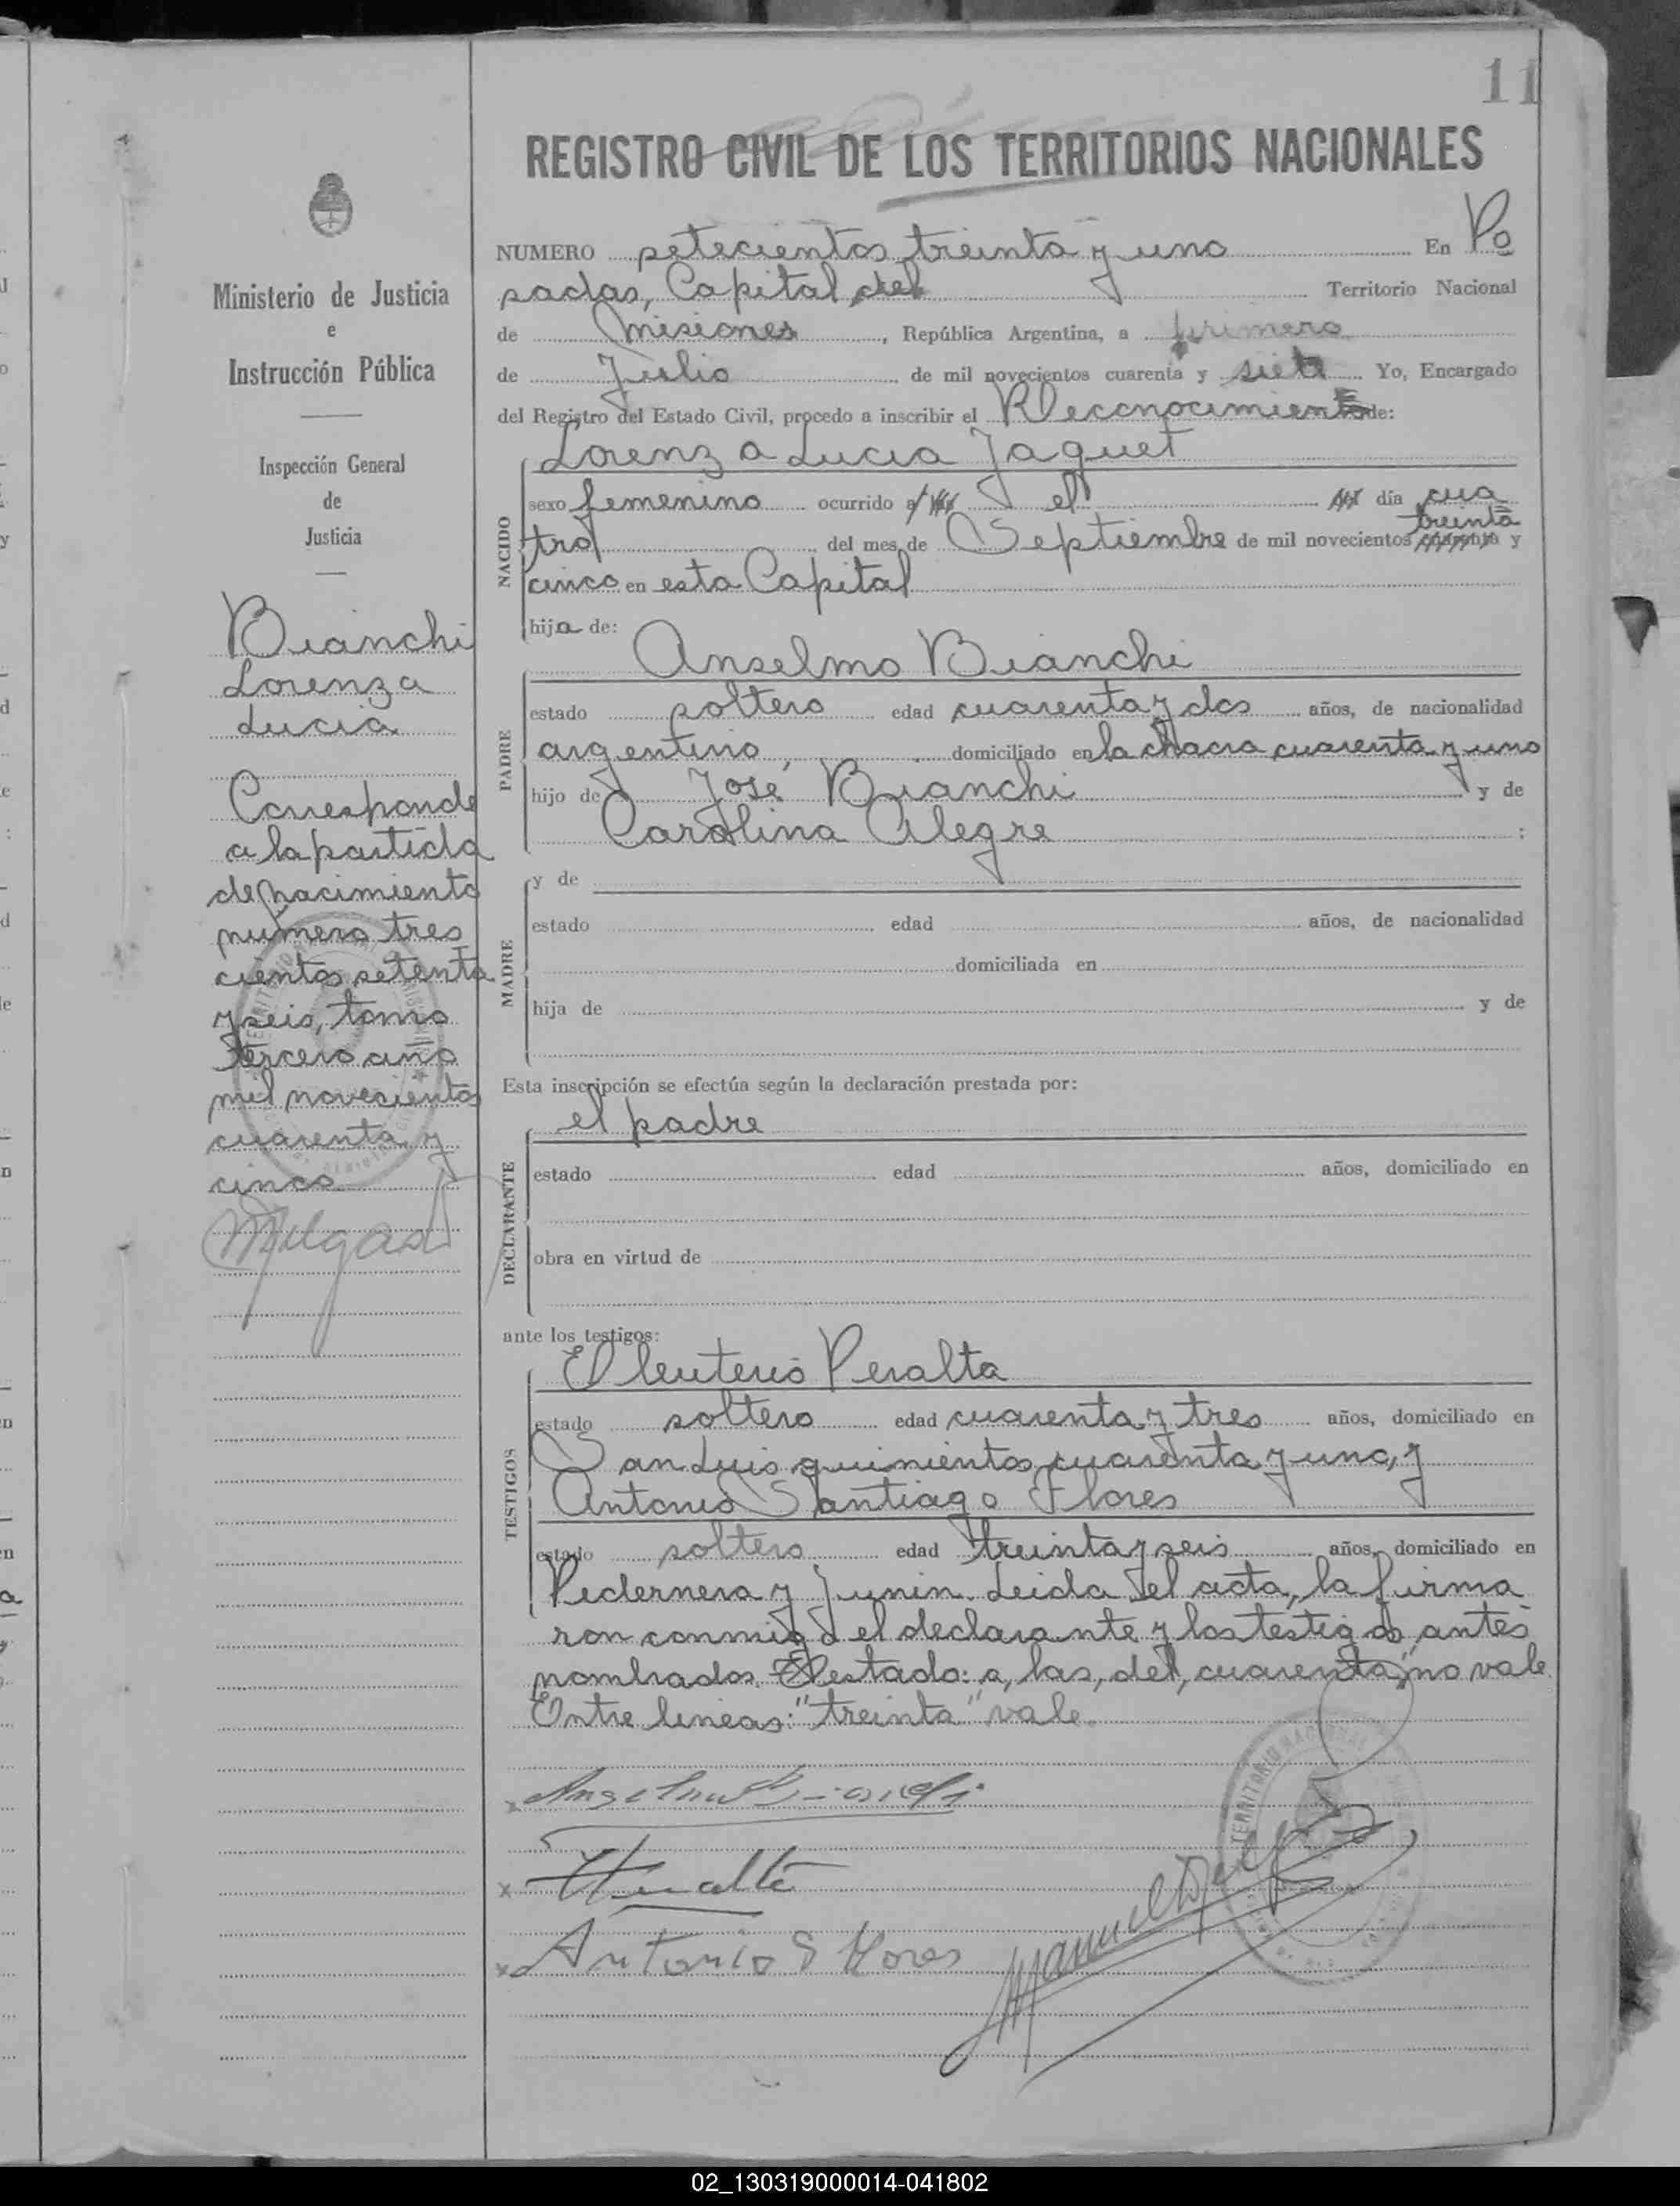 11
REGISTRO CIVIL DE LOS TERRITORIOS NACIONALES
NUMERO setecientos treinta y uno En Po
sadas, Capital del Territorio Nacional
de Misiones, República Argentina, a primero
de Julio de mil novecientos cuarenta y siete Yo, Encargado
del Registro del Estado Civil, procedo a inscribir el Reconocimiento de:
NACIDO
Lorenza Lucia Jaquet
sexo femenino ocurrido el día cua
tro del mes de Septiembre de mil novecientos treinta y
cinco en esta Capital
hija de:
PADRE
Anselmo Bianchi
estado soltero edad cuarenta y dos años, de nacionalidad
argentino domiciliado en la chacra cuarenta y uno
hijo de José Bianchi y de
Carolina Alegre ;
MADRE
y de
estado edad años, de nacionalidad
domiciliada en
hija de y de
Esta inscripción se efectúa según la declaración prestada por:
DECLARANTE
el padre
estado edad años, domiciliado en
obra en virtud de
ante los testigos:
TESTIGOS
Eleuterio Peralta
estado soltero edad cuarenta y tres años, domiciliado en
San Luis quinientos cuarenta y uno, y
Antonio Santiago Flores
estado soltero edad treinta y seis años, domiciliado en
Pedernera y Junin. Leida el acta, la firma
ron conmigo el declarante y los testigos antes
nombrados. Testado: a, las, del, cuarenta, no vale.
Entre lineas: "treinta" vale.
Anselmo Bianchi
Antonio S Flores
Ministerio de Justicia
e
Instrucción Pública
Inspección General
de
Justicia
Bianchi
Lorenza
Lucia
Corresponde
a la partida
de nacimiento
número tres
cientos setenta
y seis, tomo
tercero año
mil novecientos
cuarenta y
cinco
02_130319000014-041802